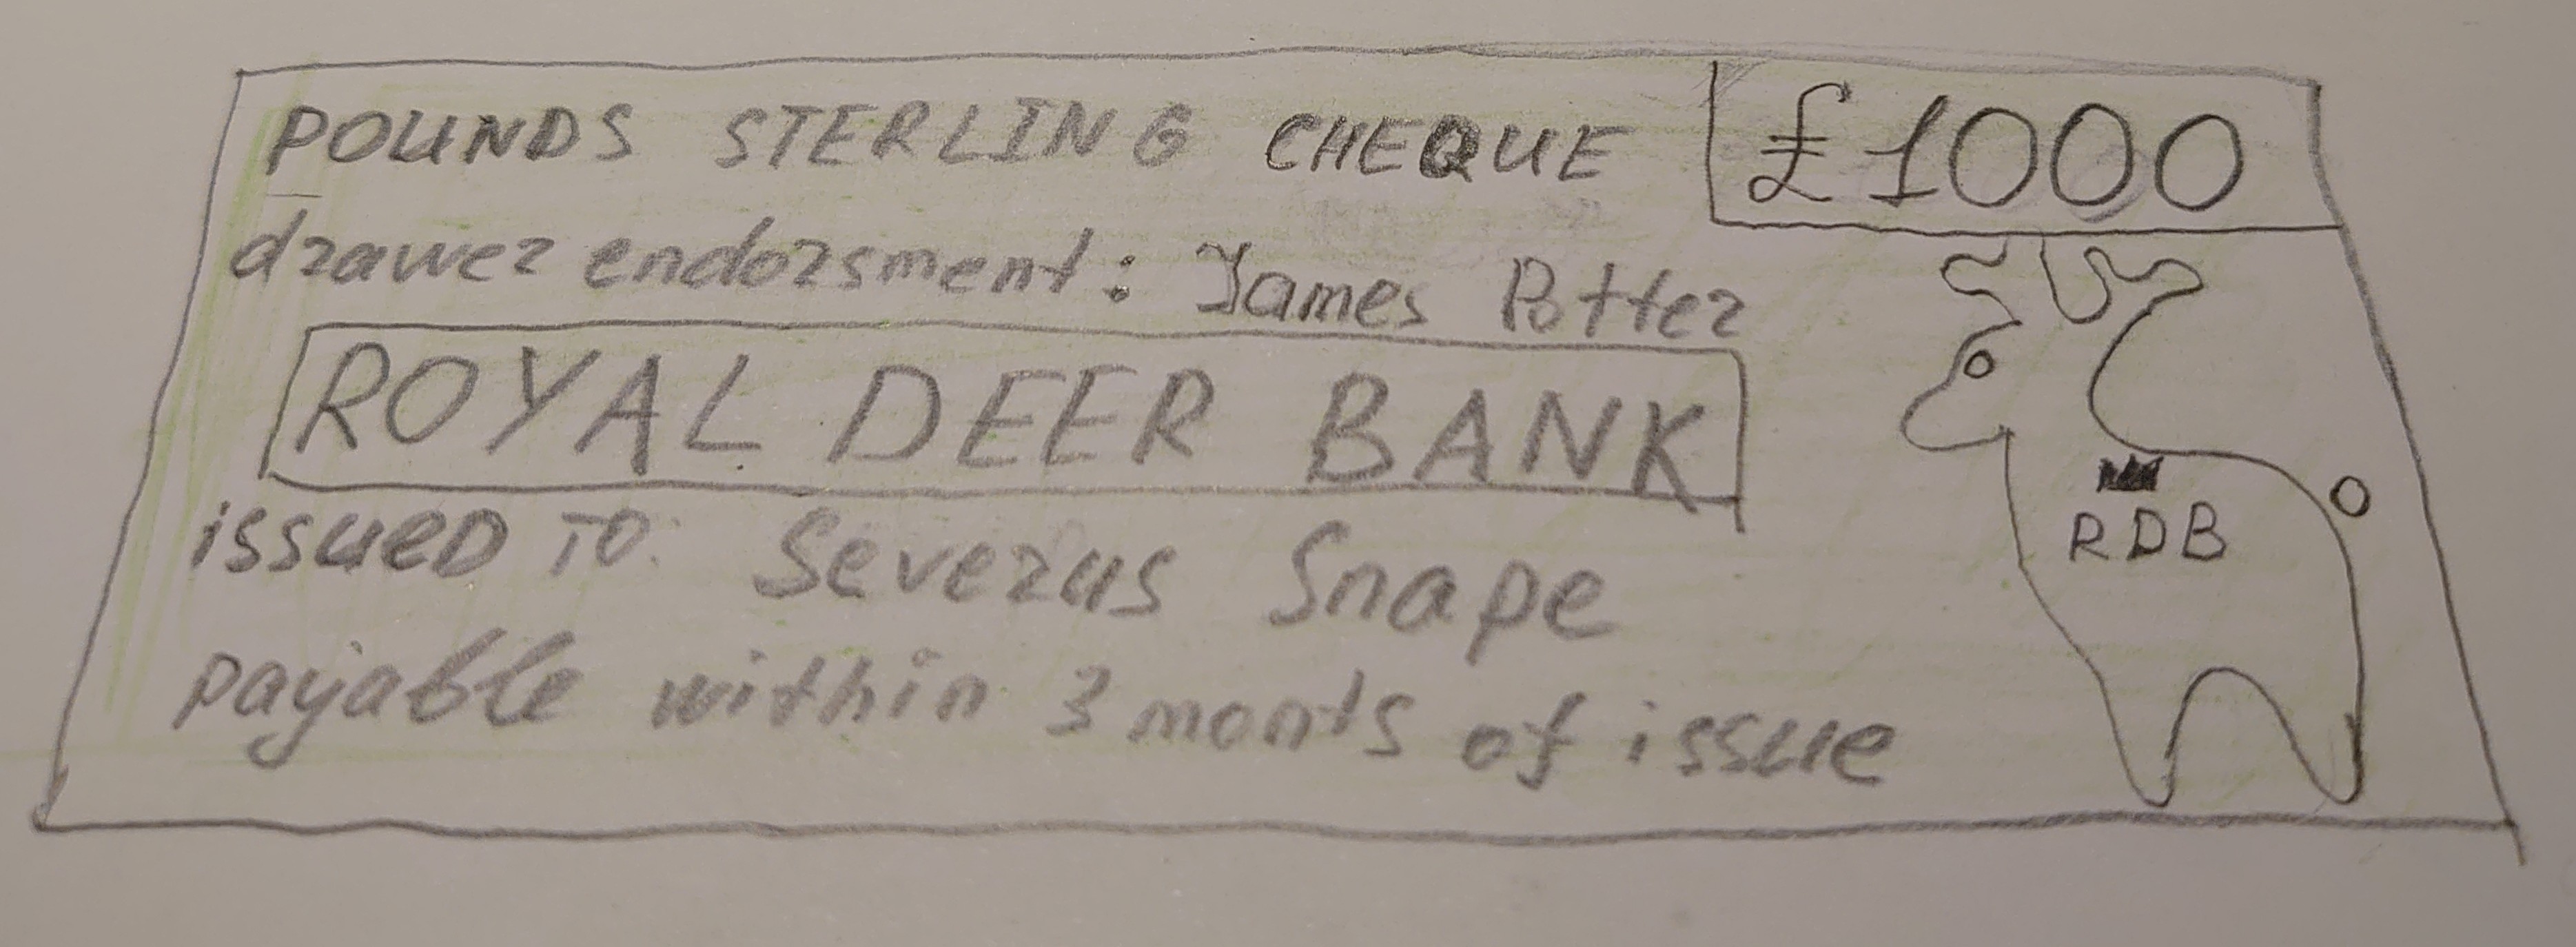 POUNDS STERLING CHEQUE £1000
drawer endorsment: James Potter
ROYAL DEER BANK
RDB
issueD TO: Severus Snape
payable within 3 monts of issue